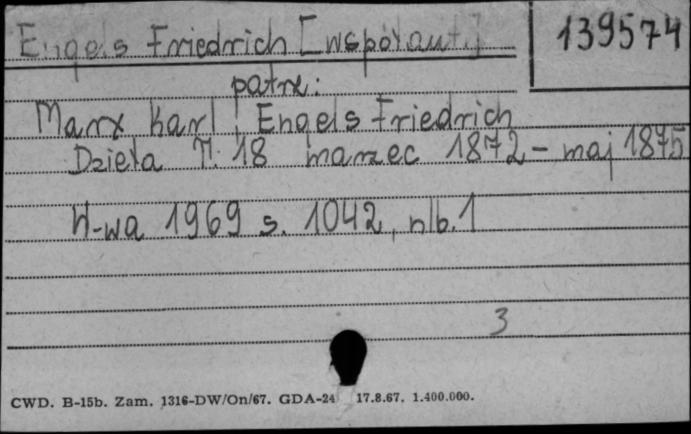 Engels Friedrich [współaut.]
139574
patrz:
Marx Karl, Engels Friedrich
Dzieła T. 18 marzec 1872 - maj 1875
W-wa 1969 s. 1042, nlb. 1
3
CWD. B-15b. Zam. 1316-DW/On/67. GDA-24 17.8.67. 1.400.000.